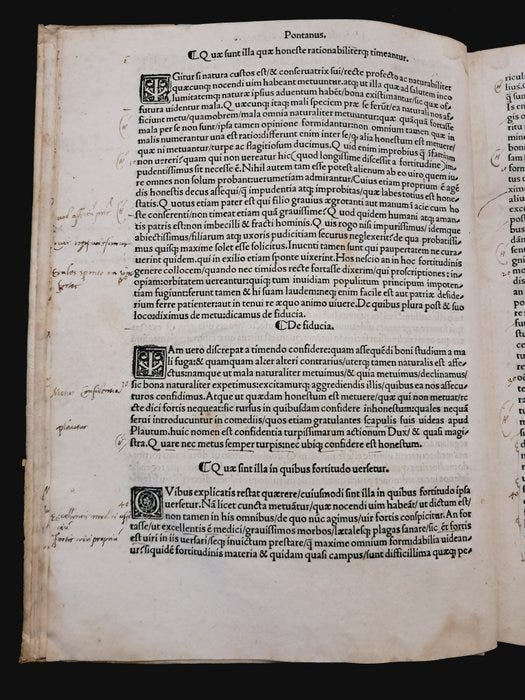 Pontanus.
⁋Quæ sunt illa quæ honeste rationabiliterqȝ timeantur.
IGitur si natura custos est/& conseruatrix sui/recte profecto ac naturabiliter
quæcunqȝ nocendi uim habeant metuuntur.atqȝ ut illa quæ ad salutem inco
lumitatemqȝ naturæ ipsius aduentum habēt/bona existimantur/sic quæ of/
futura uidentur mala. Quæcunqȝ itaqȝ mali speciem præ se ferūt/ea naturali nos af
ficiunt metu/quamobrem/mala omnia naturaliter metuunturqȝ quāquā fortasse
mala per se non sunt/ipsa tamen opinione formidantur:non omnium tamen quæ in
malis numerantur una est ratio:differunt enim inter se/qȝ alia honestum est metuere/
quæ ni metuantur/turpe ac flagitiosum ducimus. Quid enim improbius q̃ infamiam
non uereri:quam qui non uereatur hic(quod longissime discessit a fortitudine)im
pudentissimus sit necesse ē.Nihil autem tam esse potest alienum ab eo uiro quem iu
re omnes non solum probant uerumetiam admirantur.Cuius etiam proprium ē agē
dis honestis decus assequi/q̃ impudentia atqȝ improbitas/quæ labes totius est hone/
statis.Quotus etiam pater est qui filio grauius ægrotanti aut manum/aciæ cum ho
ste conserenti/non timeat etiam quā grauissime?Quod quidem humani atqȝ aman/
tis patris est:non imbecilli & fracti hominis.Quis rogo nisi impurissimus/idemque
abiectissimus/filiarum atqȝ uxoris pudicitiam securus neglexerit?de qua probatissi
mus quisqȝ maxime solet esse solicitus.Inuenti tamen sunt qui paupertatem ne cura/
uerint quidem.qui in exilio etiam sponte uixerint.Hos nescio an in hoc fortitudinis
genere collocem/quando nec timidos recte fortasse dixerim/qui proscriptiones:in/
opiam:orbitatem uereanturqȝ tum inuidiam populi tum principum impoten/
tiam fugiunt:ferunt tamen & hi suam laudem:neqȝ enim facile est aut patriæ deside/
rium ferre patienter:aut in tenui re æquo animo uiuere.De quibus plura post & suo
loco:diximus de metu:dicamus de fiducia.
⁋De fiducia.
IAm uero discrepat a timendo confidere:quam assequēdi boni studium a ma
li fuga:& quamquam alter alteri contrarius/uterqȝ tamen naturalis est affe/
ctus:namque ut mala naturaliter metuimus/& quia metuimus/declinamus/
sic bona naturaliter expetimus:excitamurqȝ aggrediendis illis/quibus ea nos assecu/
turos confidimus.Atque ut quædam honestum est metuere/quæ qui non metuat/re
cte dici fortis nequeat:sic rursus in quibusdam confidere inhonestum:quales nequā
serui introducuntur in comœdiis/quos etiam gratulantes scapulis suis uideas apud
Plautum.huic nomen est confidentia turpissimarum actionum Dux/& quasi magi/
stra.Quare nec metus semper turpis:nec ubiqȝ confidere est honestum.
⁋Quæ sint illa in quibus fortitudo uersetur.
QVibus explicatis restat quærere/cuiusmodi sint illa in quibus fortitudo ipsa
uersetur.Nā licet cuncta metuātur/quæ nocendi uim habeāt/ut dictum est/
non tamen in his omnibus/de quo nūc agimus/uir fortis conspicitur.An for
tasse/ut excellentis ē medici/grauissimos morbos/lætalesqȝ plagas sanare/sic & fortis
est uiri in iis uersari/seqȝ inuictum prestare/q̃ maxime omnium formidabilia uidean/
ur?siquidē fortitudinis materia & quidam quasi campus/sunt difficillima quæqȝ pe/
plautus